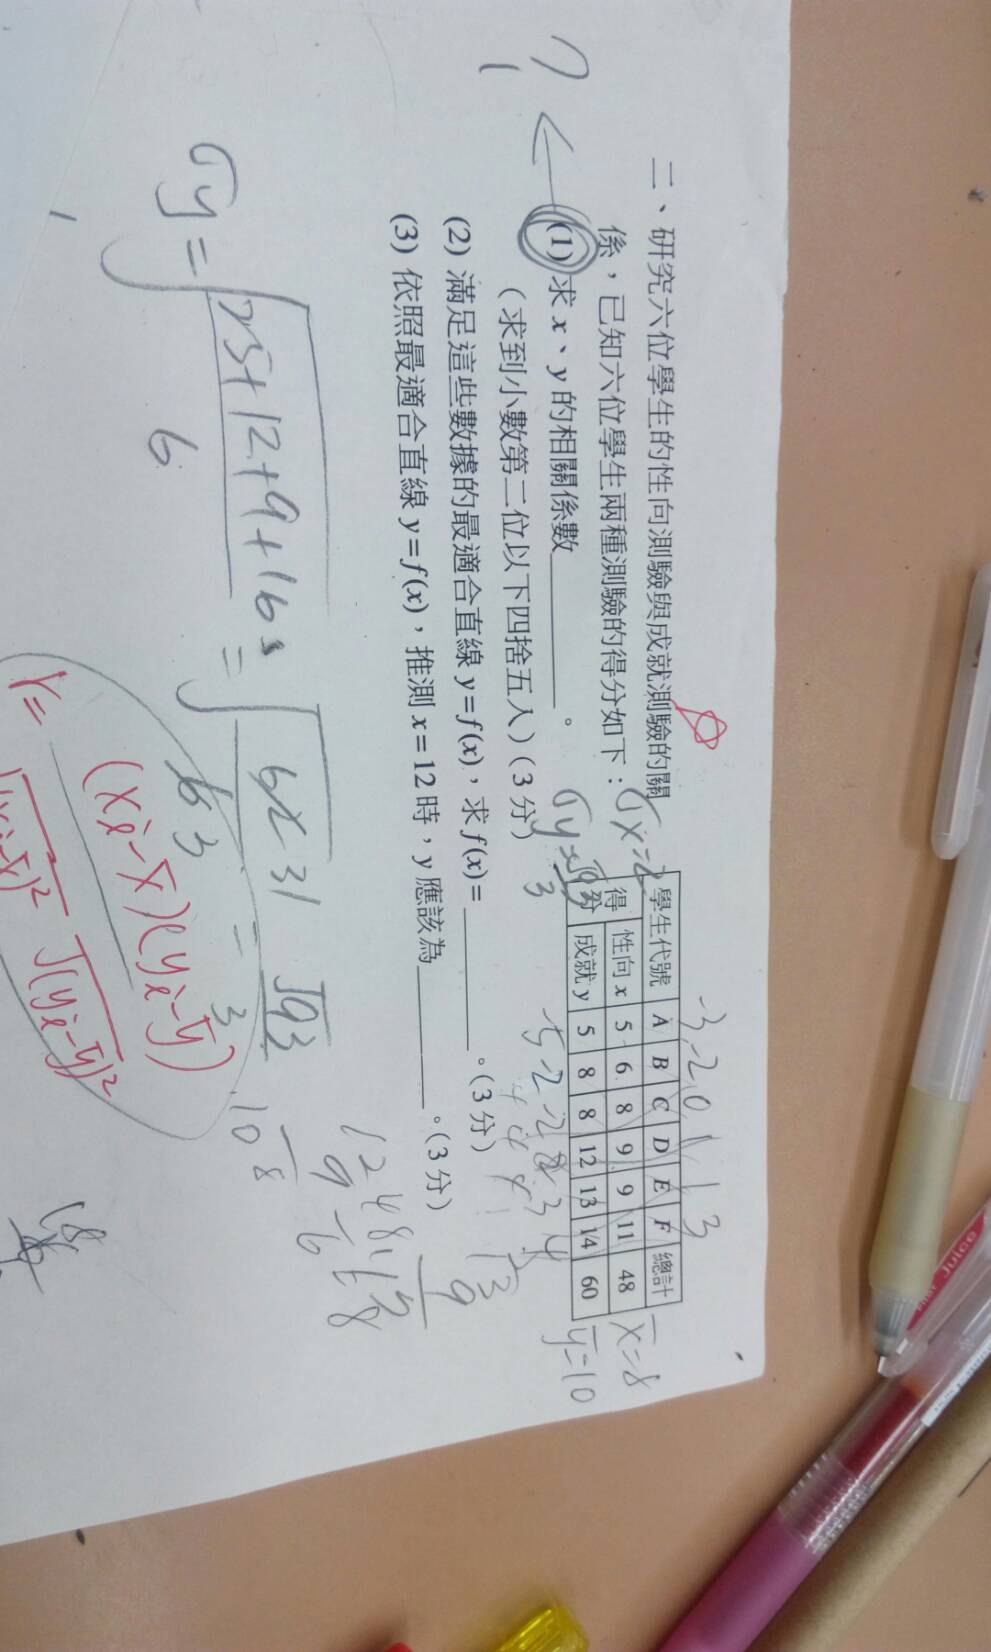 二、研究六位學生的性向測驗與成就測驗的關
係，已知六位學生兩種測驗的得分如下：
σx=2
σy=√93/3
-3 -2 0 1 1 3
學生代號 A B C D E F 總計
得分 性向 x 5 6 8 9 9 11 48
成就 y 5 8 8 12 13 14 60
x̄=8
ȳ=10
-5 -2 -2 2 3 4
(1) 求 x、y 的相關係數________。
（求到小數第二位以下四捨五入）（3 分）
(2) 滿足這些數據的最適合直線 y=f(x)，求 f(x)=________。（3 分）
(3) 依照最適合直線 y=f(x)，推測 x=12 時，y 應該為________。（3 分）
σy=√25+12+9+16/6=
31
3
√93
3
r=
(xi-x̄)(yi-ȳ)
√(xi-x̄)² √(yi-ȳ)²
Juice